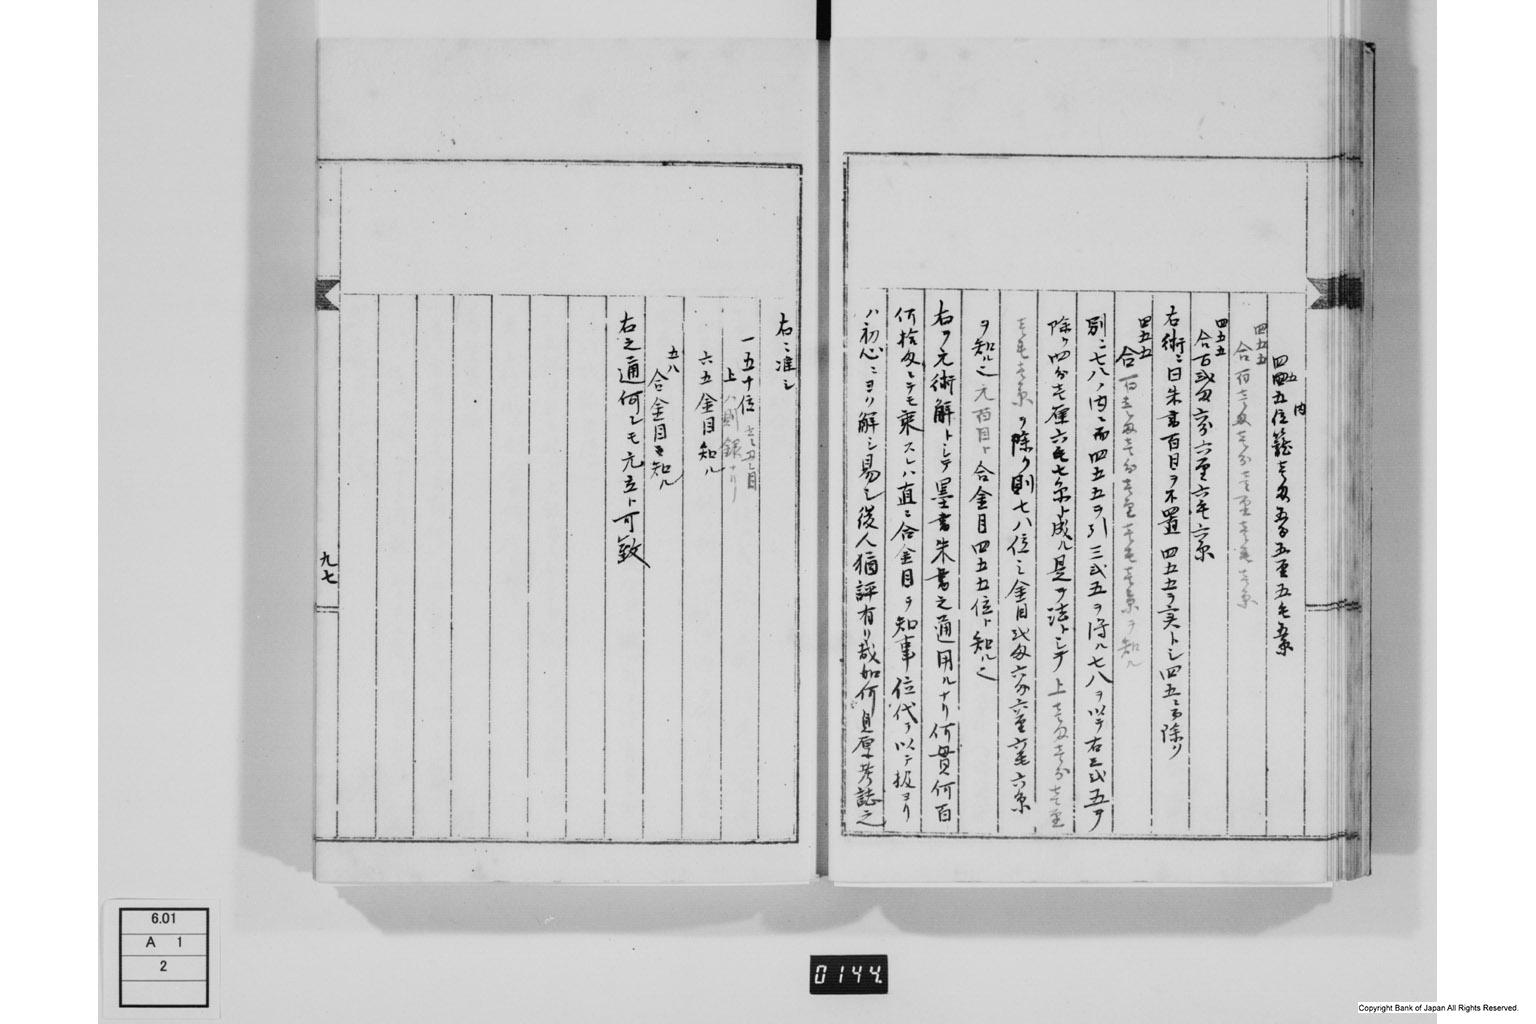 内
四四五位籠壱匁五分五厘五毛五糸
四五五
合百壱匁壱分壱厘壱毛壱糸
四五五
合百弐匁六分六厘六毛六糸
右術ニ曰朱書百目ヲ不置四五五ヲ実トシ四五ニ而除ク
四五五
合百壱匁壱分壱厘壱毛壱糸ヲ知ル
別ニ七八ノ内ニ而四五五ヲ引三弐五ヲ得ル七八ヲ以テ右三弐五ヲ
除ク四分壱厘六毛七糸ト成ル是ヲ法トシテ上壱匁壱分壱厘
壱毛壱糸ヲ除ク則七八位ニ金目弐匁六分六厘六毛六糸
ヲ知ル也元百目ト合金目四五五位ト知ル也
右ヲ元術解トシテ墨書朱書之通用ルナリ何貫何百
何拾匁ニテモ乗スレハ直ニ合金目ヲ知事位代ヲ以テ扱ヨリ
ハ初心ニヨリ解シ易シ後人猶評有リ哉如何見原考誌之
右ニ准シ
一五十位
上ハ則銀ナリ
六五金目知ル
五八
合金目ヲ知ル
右之通何レモ元立ト可致
九七
6.01
A 1
2
0144
Copyright Bank of Japan All Rights Reserved.